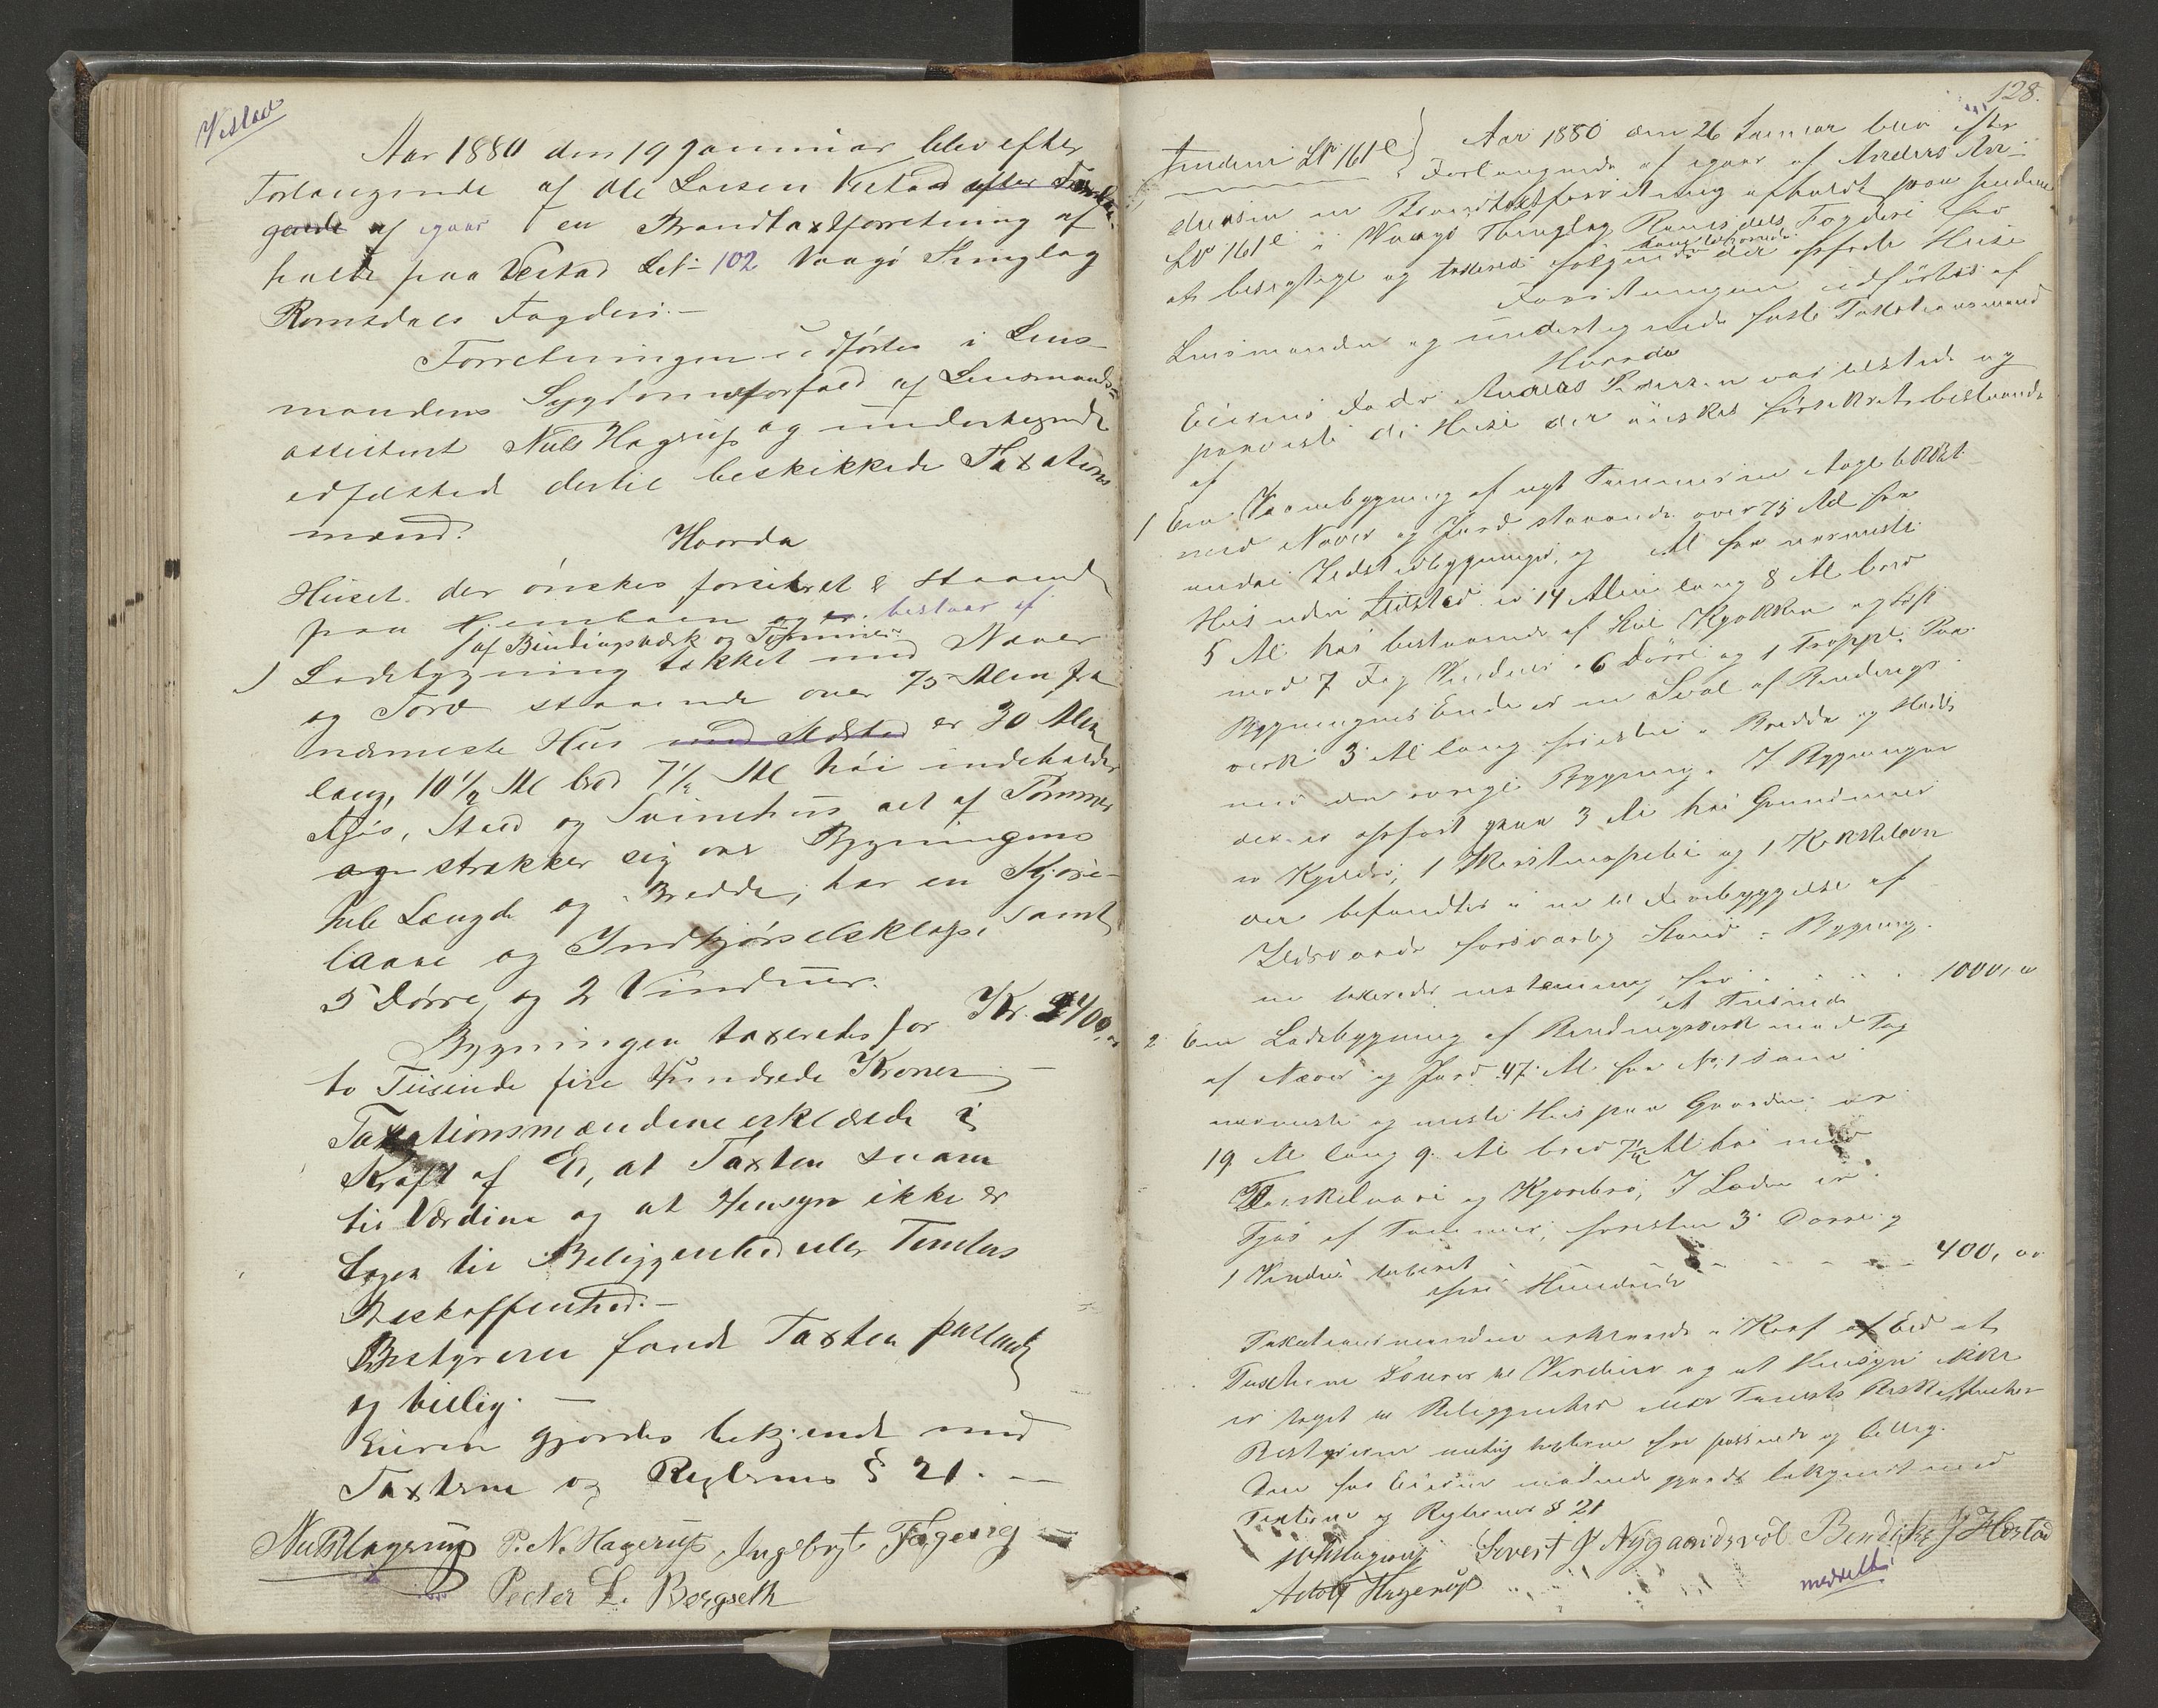 Vestad
Aar 1880 den 19 Januar blev efter
Forlangende af Ole Larsen Vestad efter Forlan
gende af igaar en Brandtaxtforretning af
holdt paa Vestad LN– 102 Vaagø Thinglag
Romsdals Fogderi.–
Forretningen udførtes i Lens
mandens Sygdomsforfald af Lensmands=
assistent Niels Hagerup og undertegnede
edfæstede dertil beskikkede Taxations
mænd.
Hvorda
Huset der ønskes forsikret er staaende
paa Hjembøen og er bestaar af
af Bindingsværk og Tømmer
1 Ladebygning tækket med Næver
og Torv staaende over 75 Alen fra
nærmeste Hus med Ildsted er 30 Alen
lang, 10 1/2 Al bred 7 1/2 Al høi indeholder
Fjøs, Stald og Svinehus alt af Tømmer
og strækker sig over Bygningens
hele Længde og Bredde, har en Kjøre-
laave og Indkjørselsklop, samt
5 Dørre og 2 Vinduer.
Bygningen taxeredes for Kr. 2400,00
to Tusinde fire Hundrede Kroner
Taxationsmændene erklærede i
Kraft af Ed, at Taxten svarer
til Værdien og at Hensyn ikke er
tagen til Beliggenhed eller Tomtens
Beskaffenhed.–
Bestyreren fandt Taxten passende
og billig.–
Eieren gjordes bekjendt med
Taxterne og Reglernes § 21.–
Niels Hagerup P. N. Hagerup Ingebrigt Fagervig
Peder L. Bergseth
128.
LN 161e Aar 1880 den 26 Januar blev efter
Forlangende af igaar af Anders An-
dersen en Brandtaxtforretning afholdt paa
LN 161e i Vaagø Thinglag Romsdals Fogderi for
at besigtige og taxere følgende der opførte Huse
Forretningen udførtes af
Lensmanden og undertegnede faste Taxationsmænd
Hvorda
Eierens Fader Anders Pedersen var tilstede og
paaviste de Huse der ønskes forsikret bestaaende
af
1 En Vaanebygning af nyt Tømmer Taget tækket
med Næver og Jord staaende over 75 Al fra
andre Ildstedbygninger, og Al fra nærmeste
Hus uden Ildsted er 14 Alen lang 8 Al bred
5 Al høi bestaaende af Kjøkken og Loft
med 7 Fag Vinduer 6 Dørre og 1 Trappe. Paa
Bygningens Ende er en Sval af Bindings
værk 3 Al lang forresten i Bredde og Høide
med den øvrige Bygning. I Bygningen
der er opført paa 3 Al høi Grundmur
er Kjelder, 1 Skorstenspibe og 1 Kakkelovn
der befandtes i en til Forebyggelse af
Ildsvaade forsvarlig Stand. Bygning
en taxeredes for 1000,00
et Tusinde
2 En Ladebygning af Bindingsværk med Tag
af Næver og Jord 47 Al fra No 1 som
nærmeste og eneste Hus paa Gaarden er
19 Al lang 9 Al bred 7 1/2 Al høi med
Tærskelaave og Kjørebro, I Laden er
Fjøs af Tømmer, forresten 3 Dørre og
1 Vindu taxeret 400,00
fire Hundrede
Taxationsmændene erklærede i Kraf af Ed at
Taxterne svarer til Værdien og at Hensyn ikke
er taget til Beliggenhed eller Tomtens Beskaffenhed
Bestyreren antog taxterne for passende og billig.
Den for Eieren mødende gjordes bekjendt med
Taxterne og Reglernes § 21
Hagerup Severt J Nygaardsvol Bendik J Horstad
Adolf Hagerup
meddelt